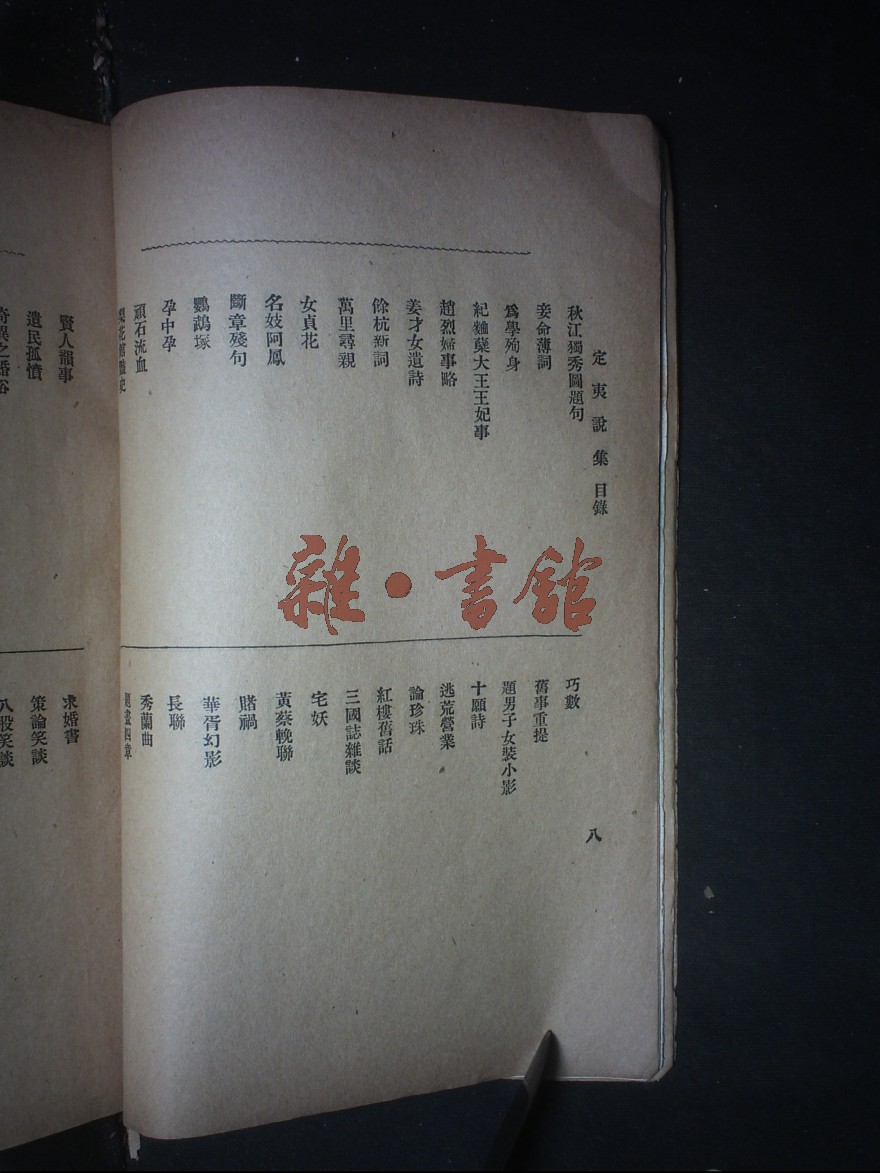 定夷說集 目錄
八
秋江獨秀圖題句
妾命薄詞
爲學殉身
紀麯蘖大王王妃事
趙烈婦事略
姜才女遺詩
餘杭新詞
萬里尋親
女貞花
名妓阿鳳
斷章殘句
鸚鵡塚
孕中孕
頑石流血
巧數
舊事重提
題男子女裝小影
十願詩
逃荒營業
論珍珠
紅樓舊話
三國誌雜談
宅妖
黃蔡輓聯
賭禍
華胥幻影
長聯
秀蘭曲
題畫四章
賢人韻事
遺民孤憤
求婚書
策論笑談
八股笑談
雜·書館